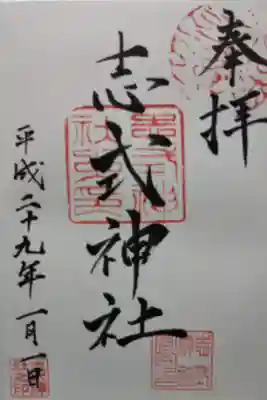 奉拝
志式神社
平成二十九年一月一日